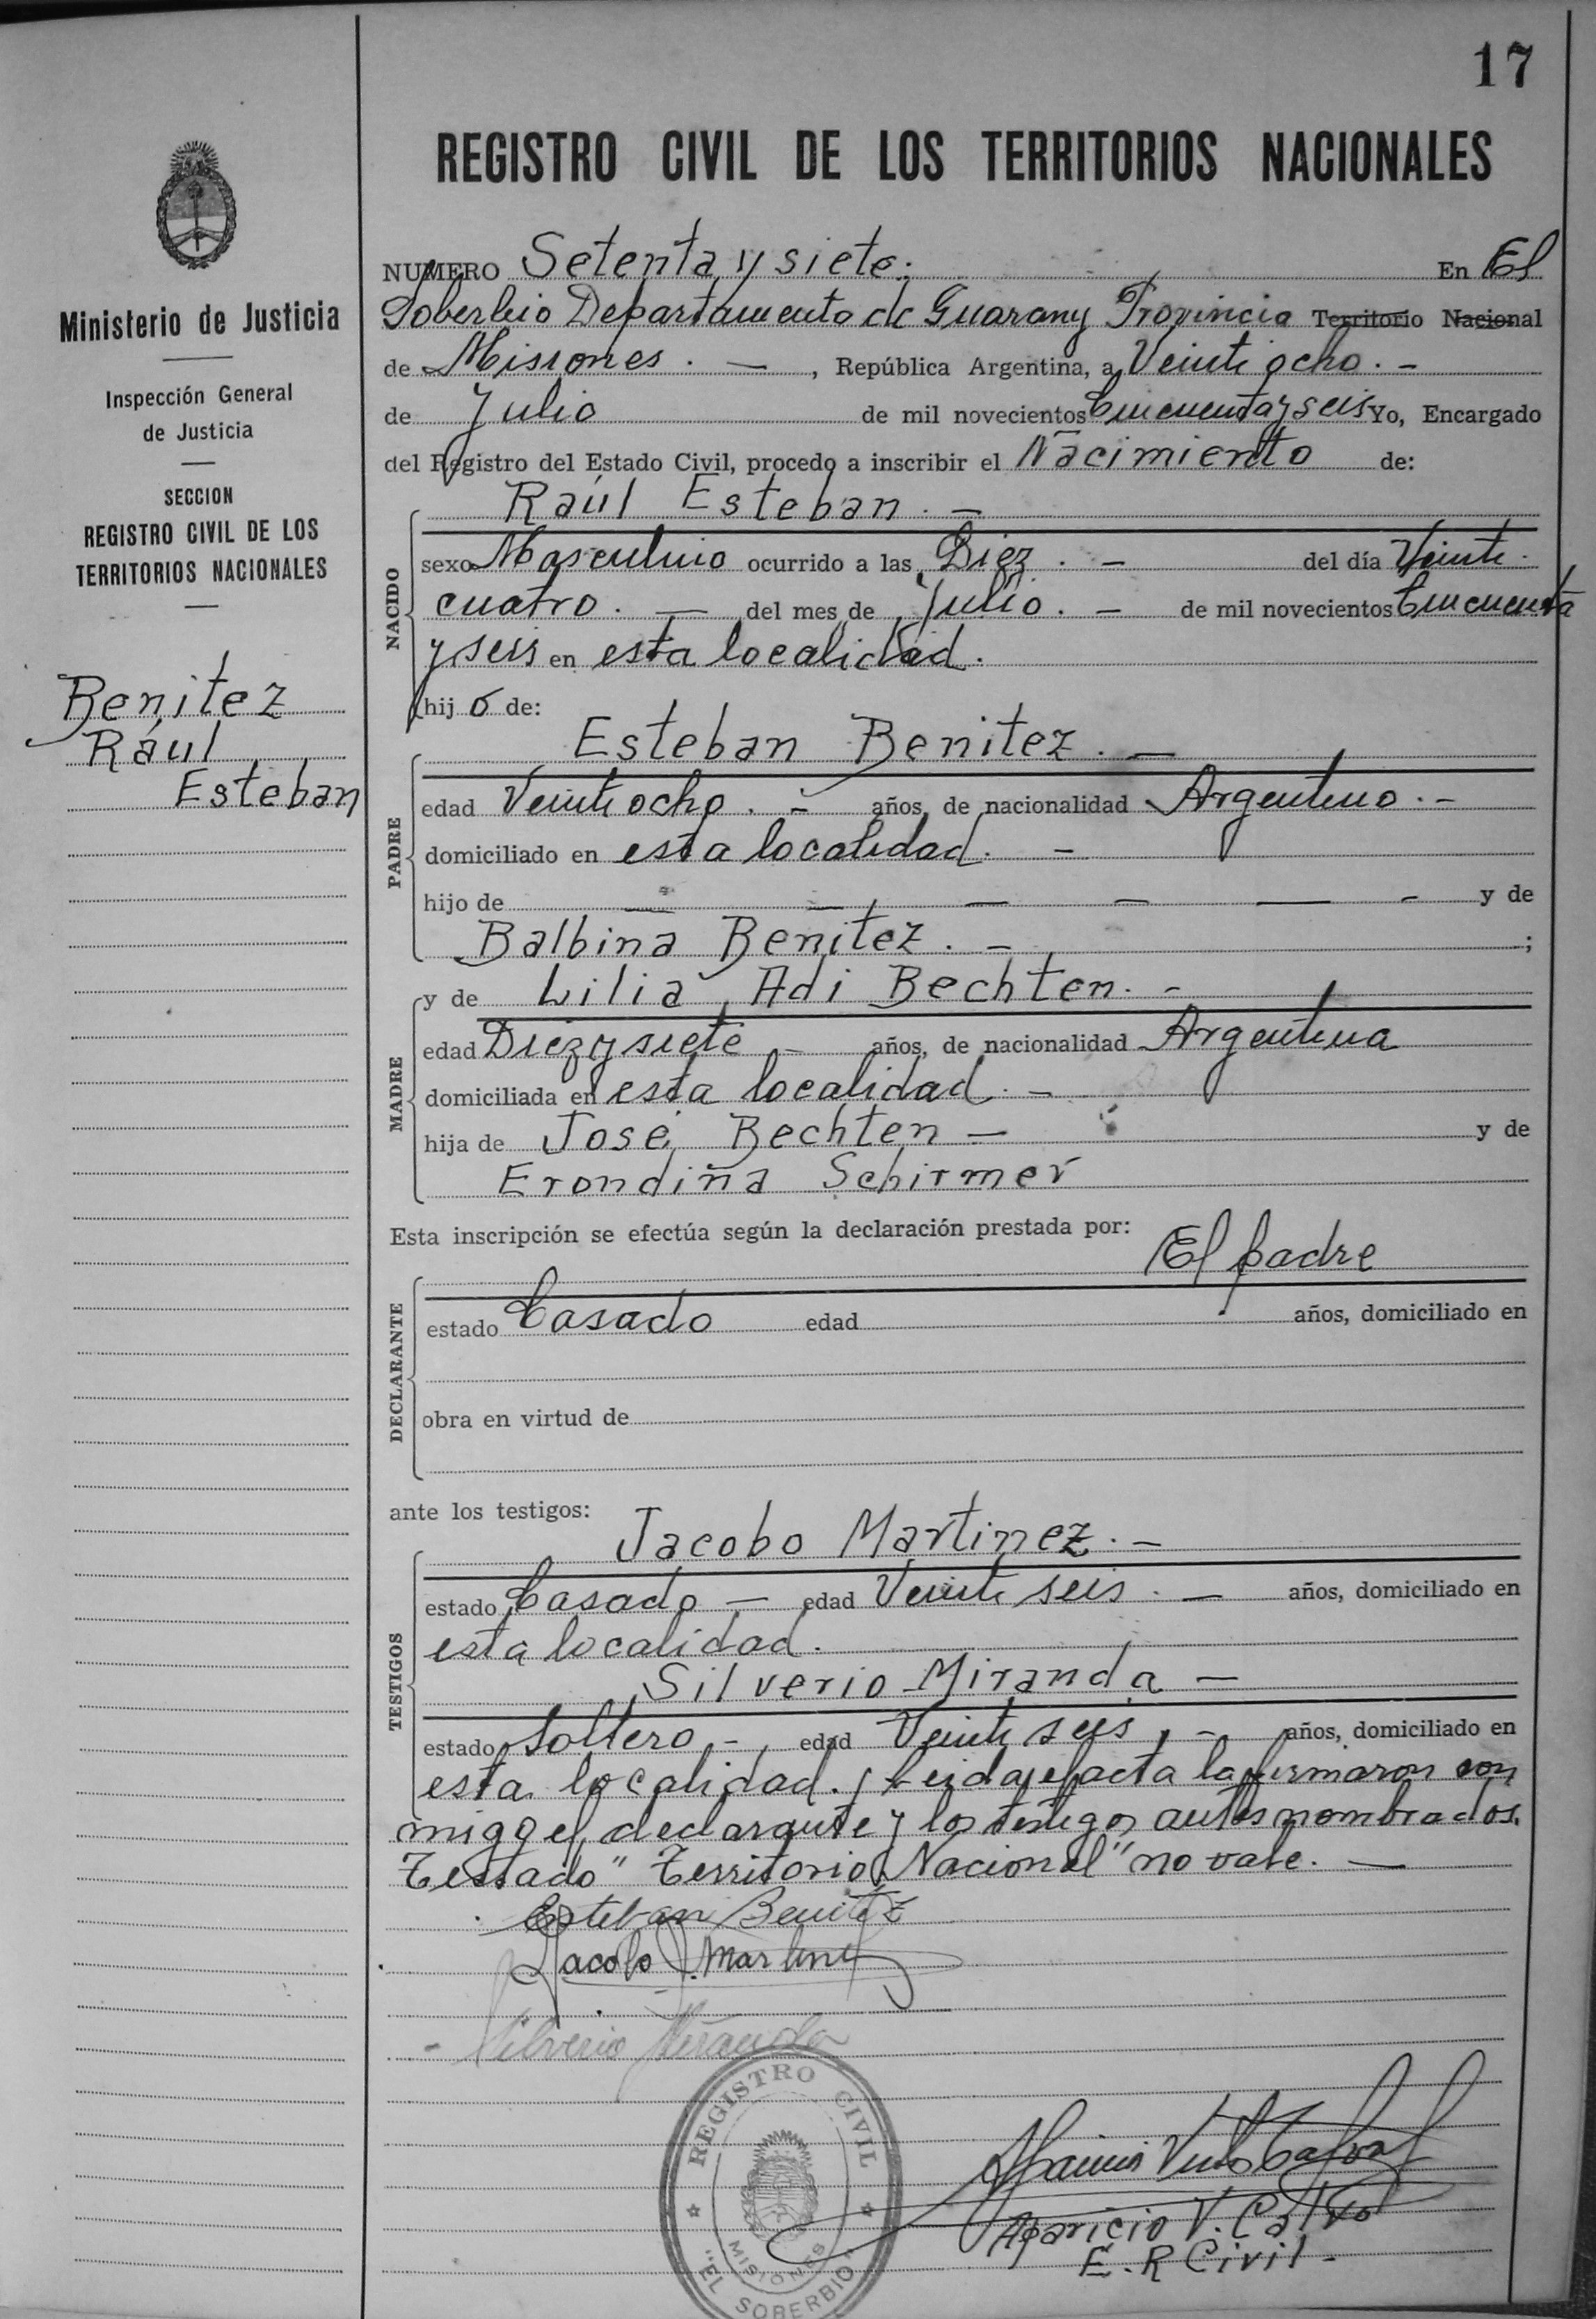 17
REGISTRO CIVIL DE LOS TERRITORIOS NACIONALES
Ministerio de Justicia
Inspección General
de Justicia
SECCION
REGISTRO CIVIL DE LOS
TERRITORIOS NACIONALES
Benitez
Raúl
Esteban
NUMERO Setenta y siete. En El
Soberbio Departamento de Guarany Provincia Territorio Nacional
de Misiones. — , República Argentina, a Veinti ocho. -
de Julio de mil novecientos Cincuenta y seis Yo, Encargado
del Registro del Estado Civil, procedo a inscribir el Nacimiento de:
Raúl Esteban. —
NACIDO
sexo Masculino ocurrido a las Diez. - del día Veinti
cuatro. — del mes de Julio. - de mil novecientos Cincuenta
y seis en esta localidad.
hij o de:
Esteban Benitez. —
PADRE
edad Veinti ocho. - años, de nacionalidad Argentino. -
domiciliado en esta localidad. -
hijo de — — — — — - y de
Balbina Benitez. - ;
MADRE
y de Lilia Adi Bechten. -
edad Diez y siete - años, de nacionalidad Argentina
domiciliada en esta localidad. -
hija de José Bechten — y de
Erondina Schirmer
Esta inscripción se efectúa según la declaración prestada por:
El padre
DECLARANTE
estado Casado edad años, domiciliado en
obra en virtud de
ante los testigos:
Jacobo Martinez. -
TESTIGOS
estado Casado — edad Veinti seis. — años, domiciliado en
esta localidad.
Silverio Miranda —
estado Soltero. - edad Veinti seis, - años, domiciliado en
esta localidad. Leida el acta la firmaron con
migo el declarante y los testigos antes nombrados.
Testado "Territorio Nacional" no vale. —
Esteban Benitez
Jacobo J. Martinez
Silverio Miranda
REGISTRO CIVIL
MISIONES
"EL SOBERBIO"
Aparicio V. Calvo
E. R Civil -